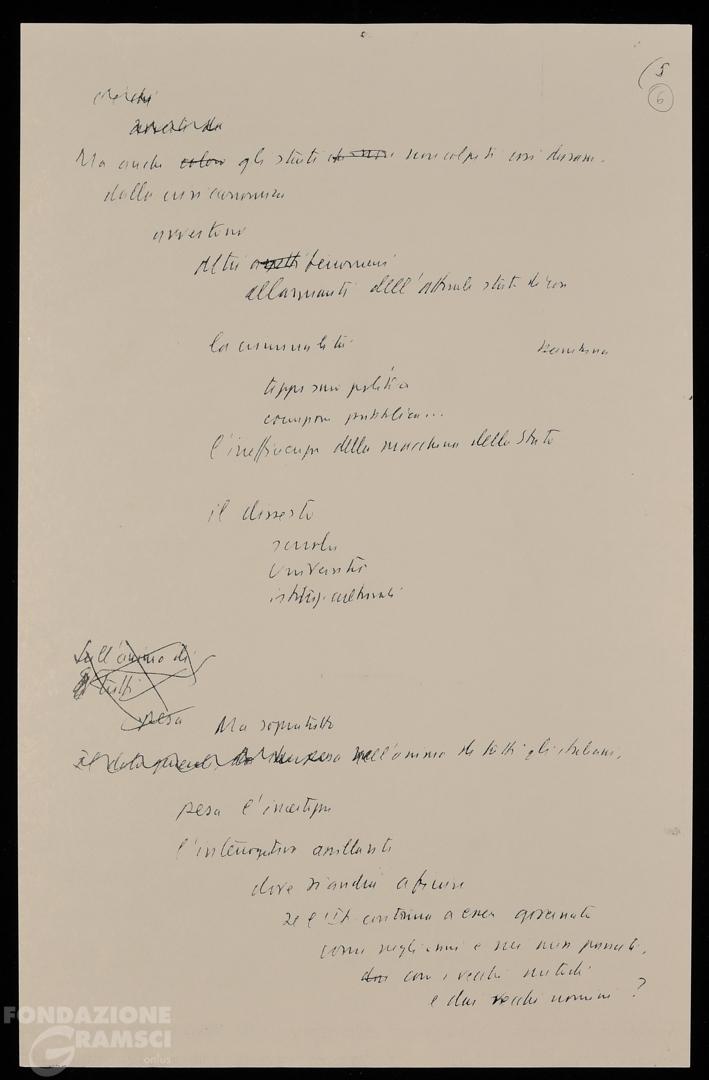 5
6
Ma anche gli strati non colpiti così duram.
dalla crisi economica
avvertono
altri aspetti fenomeni
allarmanti dell'attuale stato di cose
la criminalità
teppismo politico
corruzione pubblica...
l'inefficienza della macchina dello Stato
il dissesto
scuola
Università
istituz. culturali
sull'animo di
tutti
pesa Ma soprattutto
nell'animo di tutti gli italiani,
pesa l'incertezza
l'interrogativo assillante
dove si andrà a finire
se l'It. continua a esser governata
come negli anni e nei mesi passati,
con i vecchi metodi
e dai vecchi uomini?
FONDAZIONE
GRAMSCI
onlus